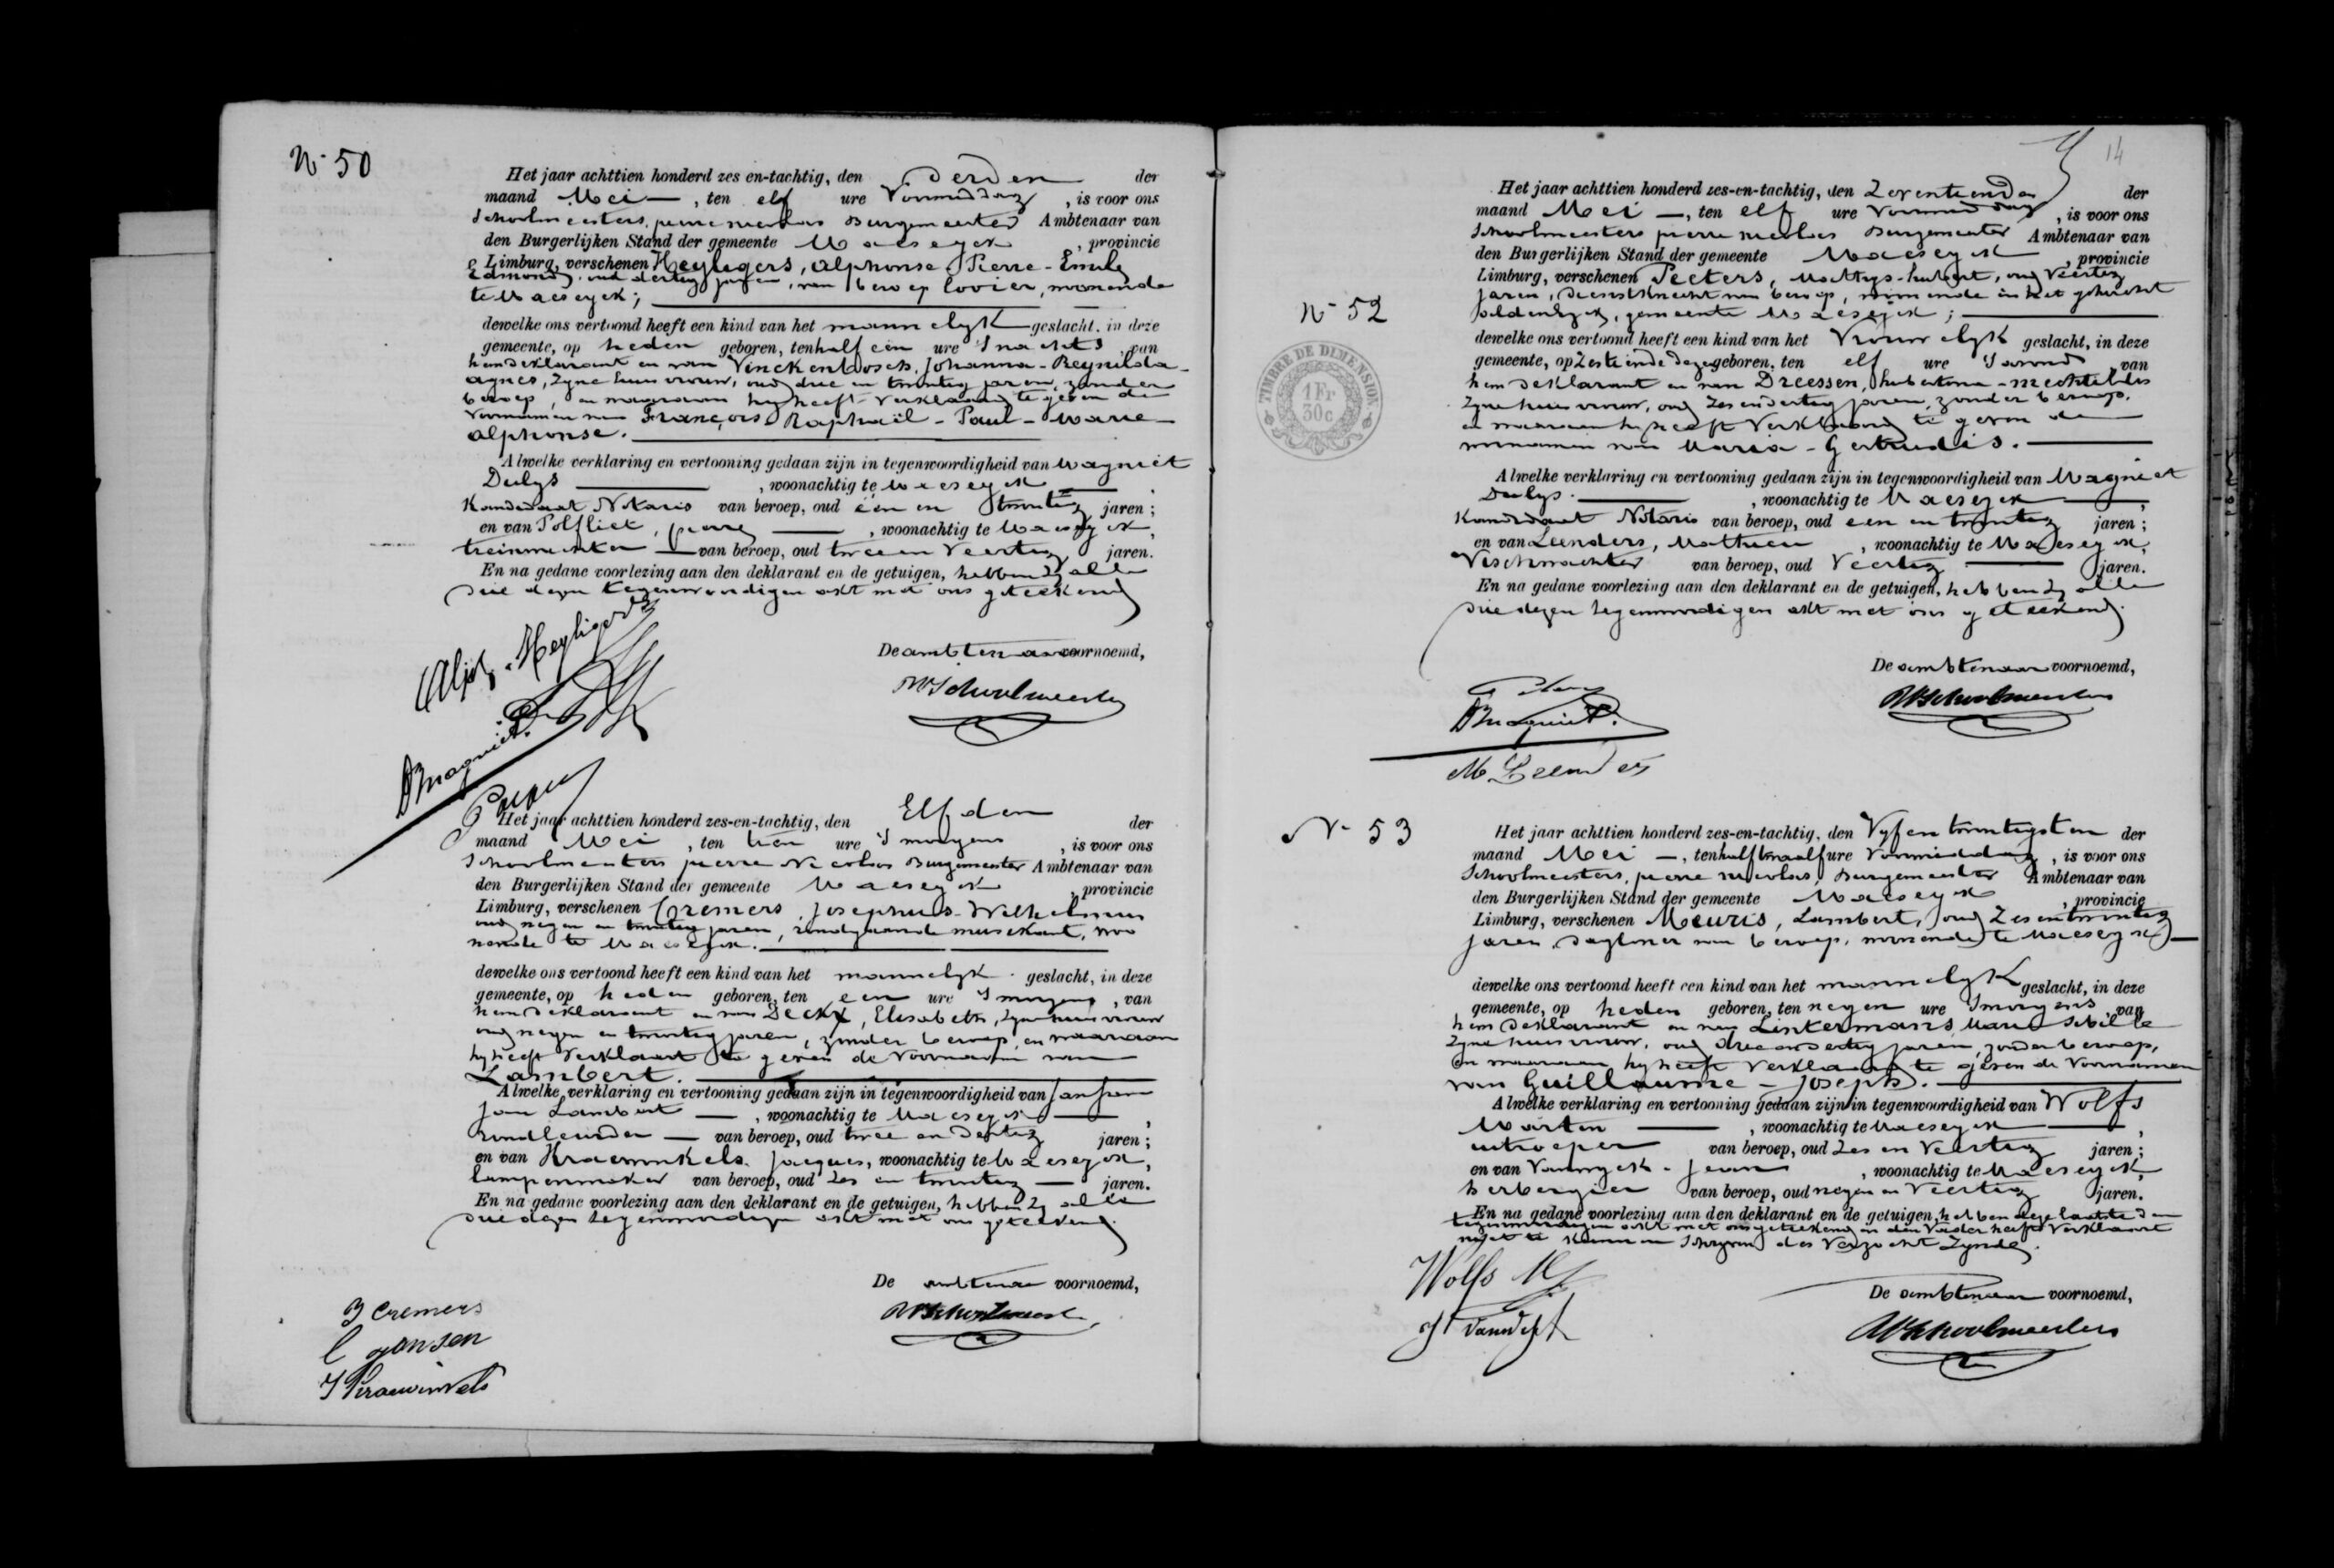 N. 50
Het jaar achttien honderd zes en-tachtig, den derden der
maand Mei, ten elf ure Voormiddag, is voor ons
Schoolmeesters, pierre nicolas Burgemeester Ambtenaar van
den Burgerlijken Stand der gemeente Maeseyck, provincie
Limburg, verschenen Heyligers, Alphonse-Pierre-Emile
Edmond, oud dertig jaren, van beroep looier, woonende
te Maeseyck;
dewelke ons vertoond heeft een kind van het mannelyk geslacht, in deze
gemeente, op heden geboren, ten half een ure 's nachts, van
hem deklarant en van Vinckenbosch, Johanna-Reynilda-
Agnes, zyne huisvrouw, oud drie en twintig jaren, zonder
beroep, en waaraan hy heeft verklaard te geven de
Voornamen van François-Raphaël-Paul-Marie
Alphonse.
Alwelke verklaring en vertooning gedaan zijn in tegenwoordigheid van Magniet
, woonachtig te Maeseyck,
Kandidaat Notaris van beroep, oud een en twintig jaren;
en van Polfliet, pierre, woonachtig te Maeseyck,
van beroep, oud twee en Veertig jaren.
En na gedane voorlezing aan den deklarant en de getuigen, hebben zy alle
drie dezen tegenwoordigen akt met ons geteekend
De ambtenaar voornoemd,
Alph. Heyligers
DMagniet.
Schoolmeesters
Het jaar achttien honderd zes-en-tachtig, den Elfden der
maand Mei, ten tien ure 's morgens, is voor ons
Schoolmeesters pierre Nicolas Burgemeester Ambtenaar van
den Burgerlijken Stand der gemeente Maeseyck, provincie
Limburg, verschenen Cremers, Josephus-Wilhelmus
oud negen en twintig jaren, rondgaande muzikant, woo
nende te Maeseyck.
dewelke ons vertoond heeft een kind van het mannelyk geslacht, in deze
gemeente, op heden geboren, ten een ure 's morgens, van
hem deklarant en van Deckx, Elisabeth, zyne huisvrouw
oud negen en twintig jaren, zonder beroep, en waaraan
hy heeft verklaart te geven de Voornaam van
Lambert.
Alwelke verklaring en vertooning gedaan zijn in tegenwoordigheid van Jansen
Jean Lambert, woonachtig te Maeseyck,
van beroep, oud twee en dertig jaren;
en van Kraewinkels, Jacques, woonachtig te Maeseyck,
lampenmaker van beroep, oud zes en twintig jaren.
En na gedane voorlezing aan den deklarant en de getuigen, hebben zy alle
drie dezen tegenwoordigen akt met ons geteekend.
De ambtenaar voornoemd,
J Cremers
Jansen
J Kraewinkels
Schoolmeesters
14
TIMBRE DE DIMENSION
1 Fr
30c
N. 52
Het jaar achttien honderd zes-en-tachtig, den Zeventienden der
maand Mei, ten elf ure Voormiddag, is voor ons
Schoolmeesters pierre nicolas Burgemeester Ambtenaar van
den Burgerlijken Stand der gemeente Maeseyck, provincie
Limburg, verschenen Peeters, Mathys-hubert, oud Veertig
jaren, dienstknecht van beroep, woonende in het gehucht
, gemeente Maeseyck;
dewelke ons vertoond heeft een kind van het Vrouwelyk geslacht, in deze
gemeente, op Zestiende dezer geboren, ten elf ure 's avonds, van
hem deklarant en van Dreessen, hubertina-mechtildis
zyne huisvrouw, oud zes en dertig jaren, zonder beroep,
en waaraan hy heeft verklaard te geven de
voornamen van Maria-Gertrudis.
Alwelke verklaring en vertooning gedaan zijn in tegenwoordigheid van Magniet
, woonachtig te Maeseyck,
Kandidaat Notaris van beroep, oud een en twintig jaren;
en van Leenders, Mathieu, woonachtig te Maeseyck,
van beroep, oud Veertig jaren.
En na gedane voorlezing aan den deklarant en de getuigen, hebben zy alle
drie dezen tegenwoordigen akt met ons geteekend.
De ambtenaar voornoemd,
DMagniet.
M Leenders
Schoolmeesters
N. 53
Het jaar achttien honderd zes-en-tachtig, den Vyfentwintigsten der
maand Mei, ten half twaalf ure Voormiddag, is voor ons
Schoolmeesters, pierre nicolas, Burgemeester Ambtenaar van
den Burgerlijken Stand der gemeente Maeseyck, provincie
Limburg, verschenen Meuris, Lambert, oud Zesentwintig
jaren daglooner van beroep, woonende te Maeseyck
dewelke ons vertoond heeft een kind van het mannelyk geslacht, in deze
gemeente, op heden geboren, ten negen ure 's morgens, van
hem deklarant en van Linkermans, Marie Sibille
zyne huisvrouw, oud drie en dertig jaren, zonder beroep,
en waaraan hy heeft verklaard te geven de Voornamen
van Guillaume-Joseph.
Alwelke verklaring en vertooning gedaan zijn in tegenwoordigheid van Wolfs
Marten, woonachtig te Maeseyck,
uitroeper van beroep, oud zes en Veertig jaren;
en van Jean, woonachtig te Maeseyck
herbergier van beroep, oud negen en Veertig jaren.
En na gedane voorlezing aan den deklarant en de getuigen, hebben deze laatste den
tegenwoordigen akt met ons geteekend en den Vader heeft Verklaart
niet te kunnen Schryven des Verzocht Zynde.
De ambtenaar voornoemd,
Wolfs M
Schoolmeesters